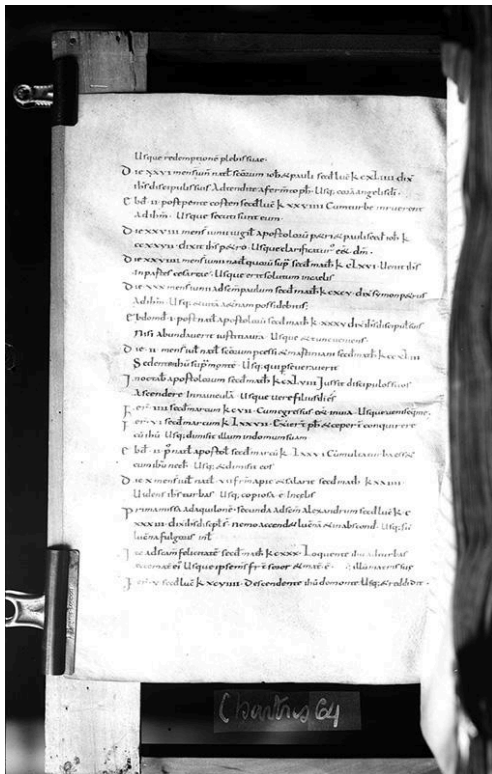 Usque redemptionē plebis suae·
Die XXVI mens iun̄ natł sc̄orum ioh̄ & pauli secd̄ luc̄ k CXLIIII dix̄
ih̄s discipulis suis Adtendite a fermēto ph̄· Usq· corā angelis dī·
Ebd̄· II· post pente costen secd̄ luc̄ k XXXVIIII Cum turbe inruerent
ad ih̄m· Usque secuti sunt eum·
Die XXVIII mens iunii uigił apostoloru p&ri & pauli secd̄ ioh̄ k
CCXXVII· dixit ih̄s p&ro· Usque clarificatur' eēt dm̄·
Die XXVIIII mens iunii natł quorū supͣ secd̄ math̄ k CLXVI· Uenit ih̄s
in partes cesareae· Usque erit solutum in caelis
Die XXX mens iunii ad sc̄m paulum secd̄ math̄ k CXCV· dix̄ symon p&rus
Ad ih̄m· Usq· & uitā aeternam possidebitis·
Ebdomd̄· I· post natł apostolorū secd̄ math̄ k· XXXV dix̄ ih̄s discipulis suis
Nisi abundauerit iustitia ura· Usque
Die· II· mens iuł natł sc̄orum processi & martiniani secd̄ math̄ k
Sedente ih̄u sup̄ monte· Usq· qui pseuerauerit
In octab̄ apostolorum secd̄ math̄ k CXLVII Jussit discipulos suos
Ascendere In nauicula· Usque uere filius dī es
Fer̄· IIII secd̄ marcum k CVII· Cum egressus eēt in uia· Usque
Fer̄· VI· secd̄ marcum k LXXVII· Exier̄t ph̄ & ceper̄t conquirere
cū ih̄u Usq· dimisit illum in domum suam
Ebd̄· II· p̄ natł apostoł secd̄ marcū k· LXXVI Cum turba
cum ih̄u Usq· & dimisit eos
Die X mens iuł natł· VII frm̄ secd̄ math̄ k XXIIII
Uidens ih̄s turbas Usq· copiosa ē In celis
Prima missa ad aquilone· secunda ad sc̄m alexandrum secd̄ luc̄ k·
XXXIII· dix̄ ih̄s disipłs· nemo accend& lucernā & in abscond· Usq· sic̄
lucerna fulgoris
ad sc̄am felicitatē secd̄ math̄ k CXXX· Loquente ih̄u ad turbas
Usque ipse ms̄ fr̄ & soror & mat̄ ē·
Fer̄· V· secd̄ luc̄ k XCVIIII· Descendente ih̄u de monte Usq· & reddidit·
Chartres 64